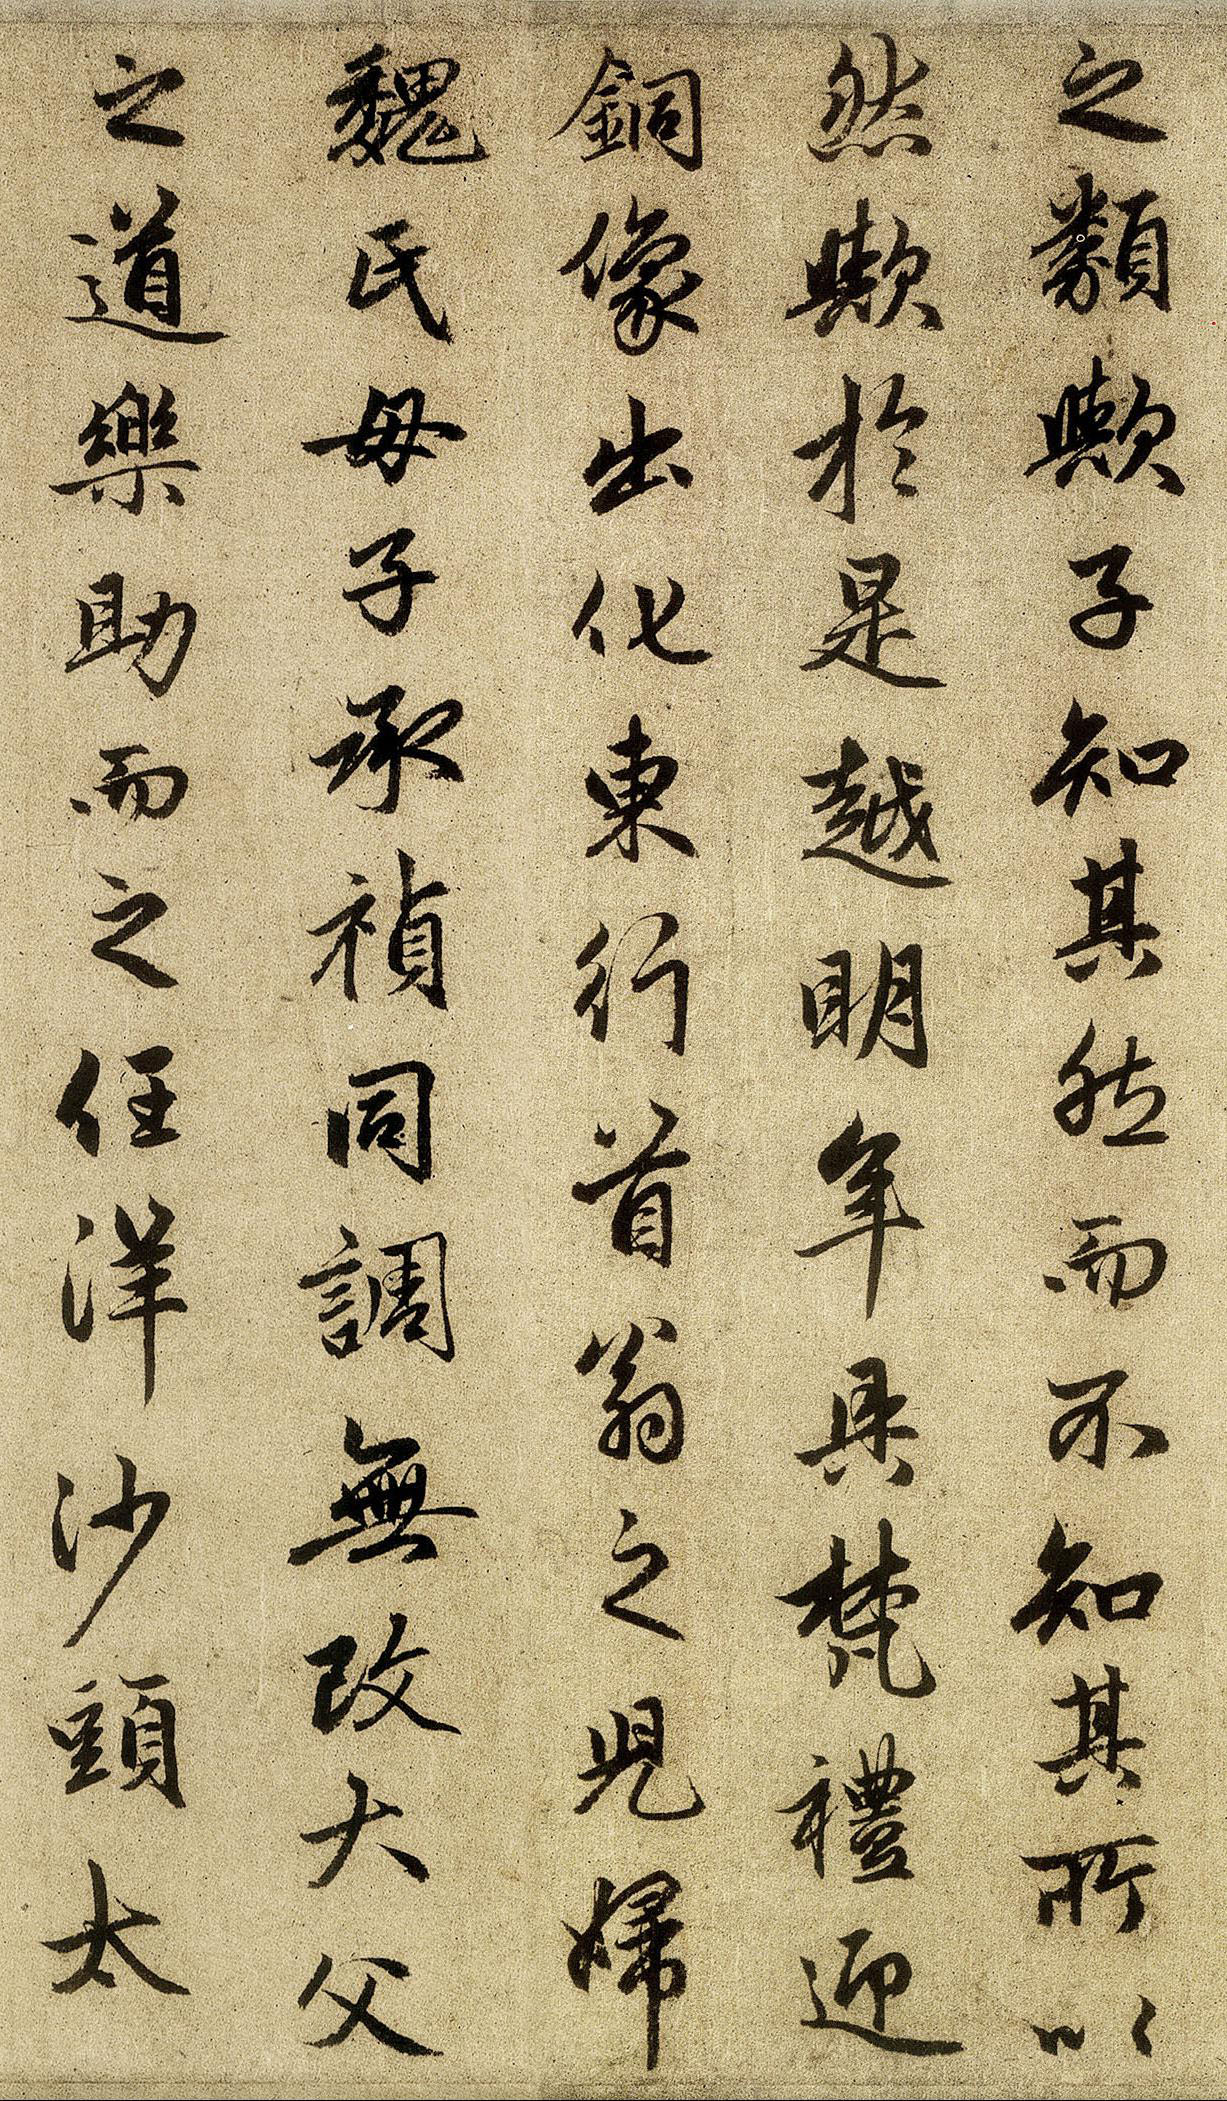 之類歟子知其然而不知其所以
然歟於是越明年具梵禮迎
銅像出化東行首翁之児婦
魏氏母子承禎同調無改大父
之道樂助而之任洋沙頭太